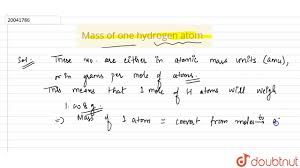 20041786
Mass of one hydrogen atom
Sol. These no. are either in atomic mass units (amu),
or in grams per mole of atoms.
This means that 1 mole of H atoms will weigh
1.008 g.
⇒ Mass of 1 atom = convert from moles to
doubtnut